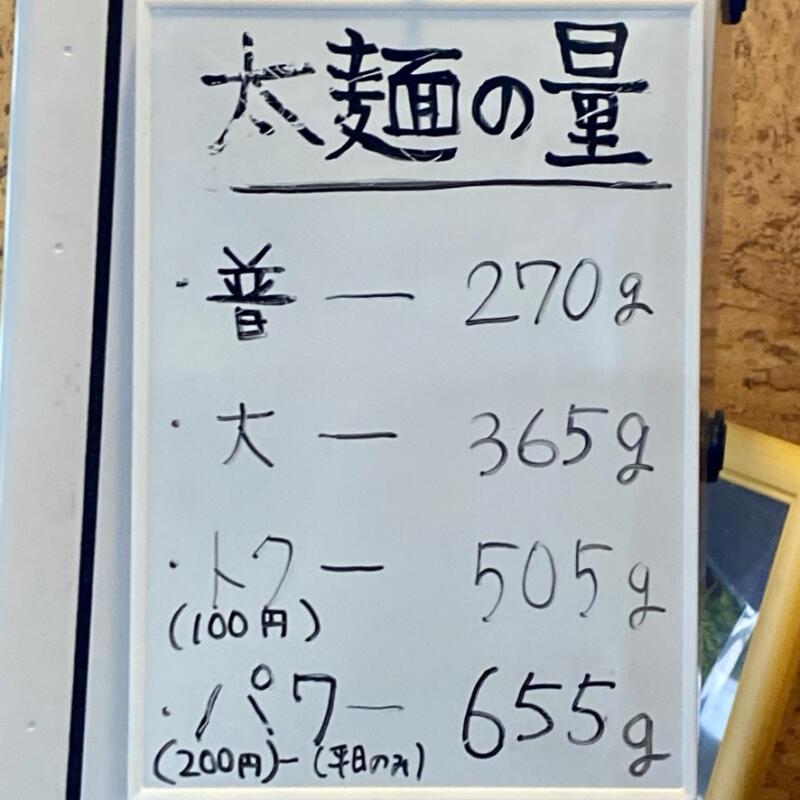 太麺の量
・普ー 270g
・大ー 365g
・トクー 505g
(100円)
・パワー 655g
(200円)ー(平日のみ)